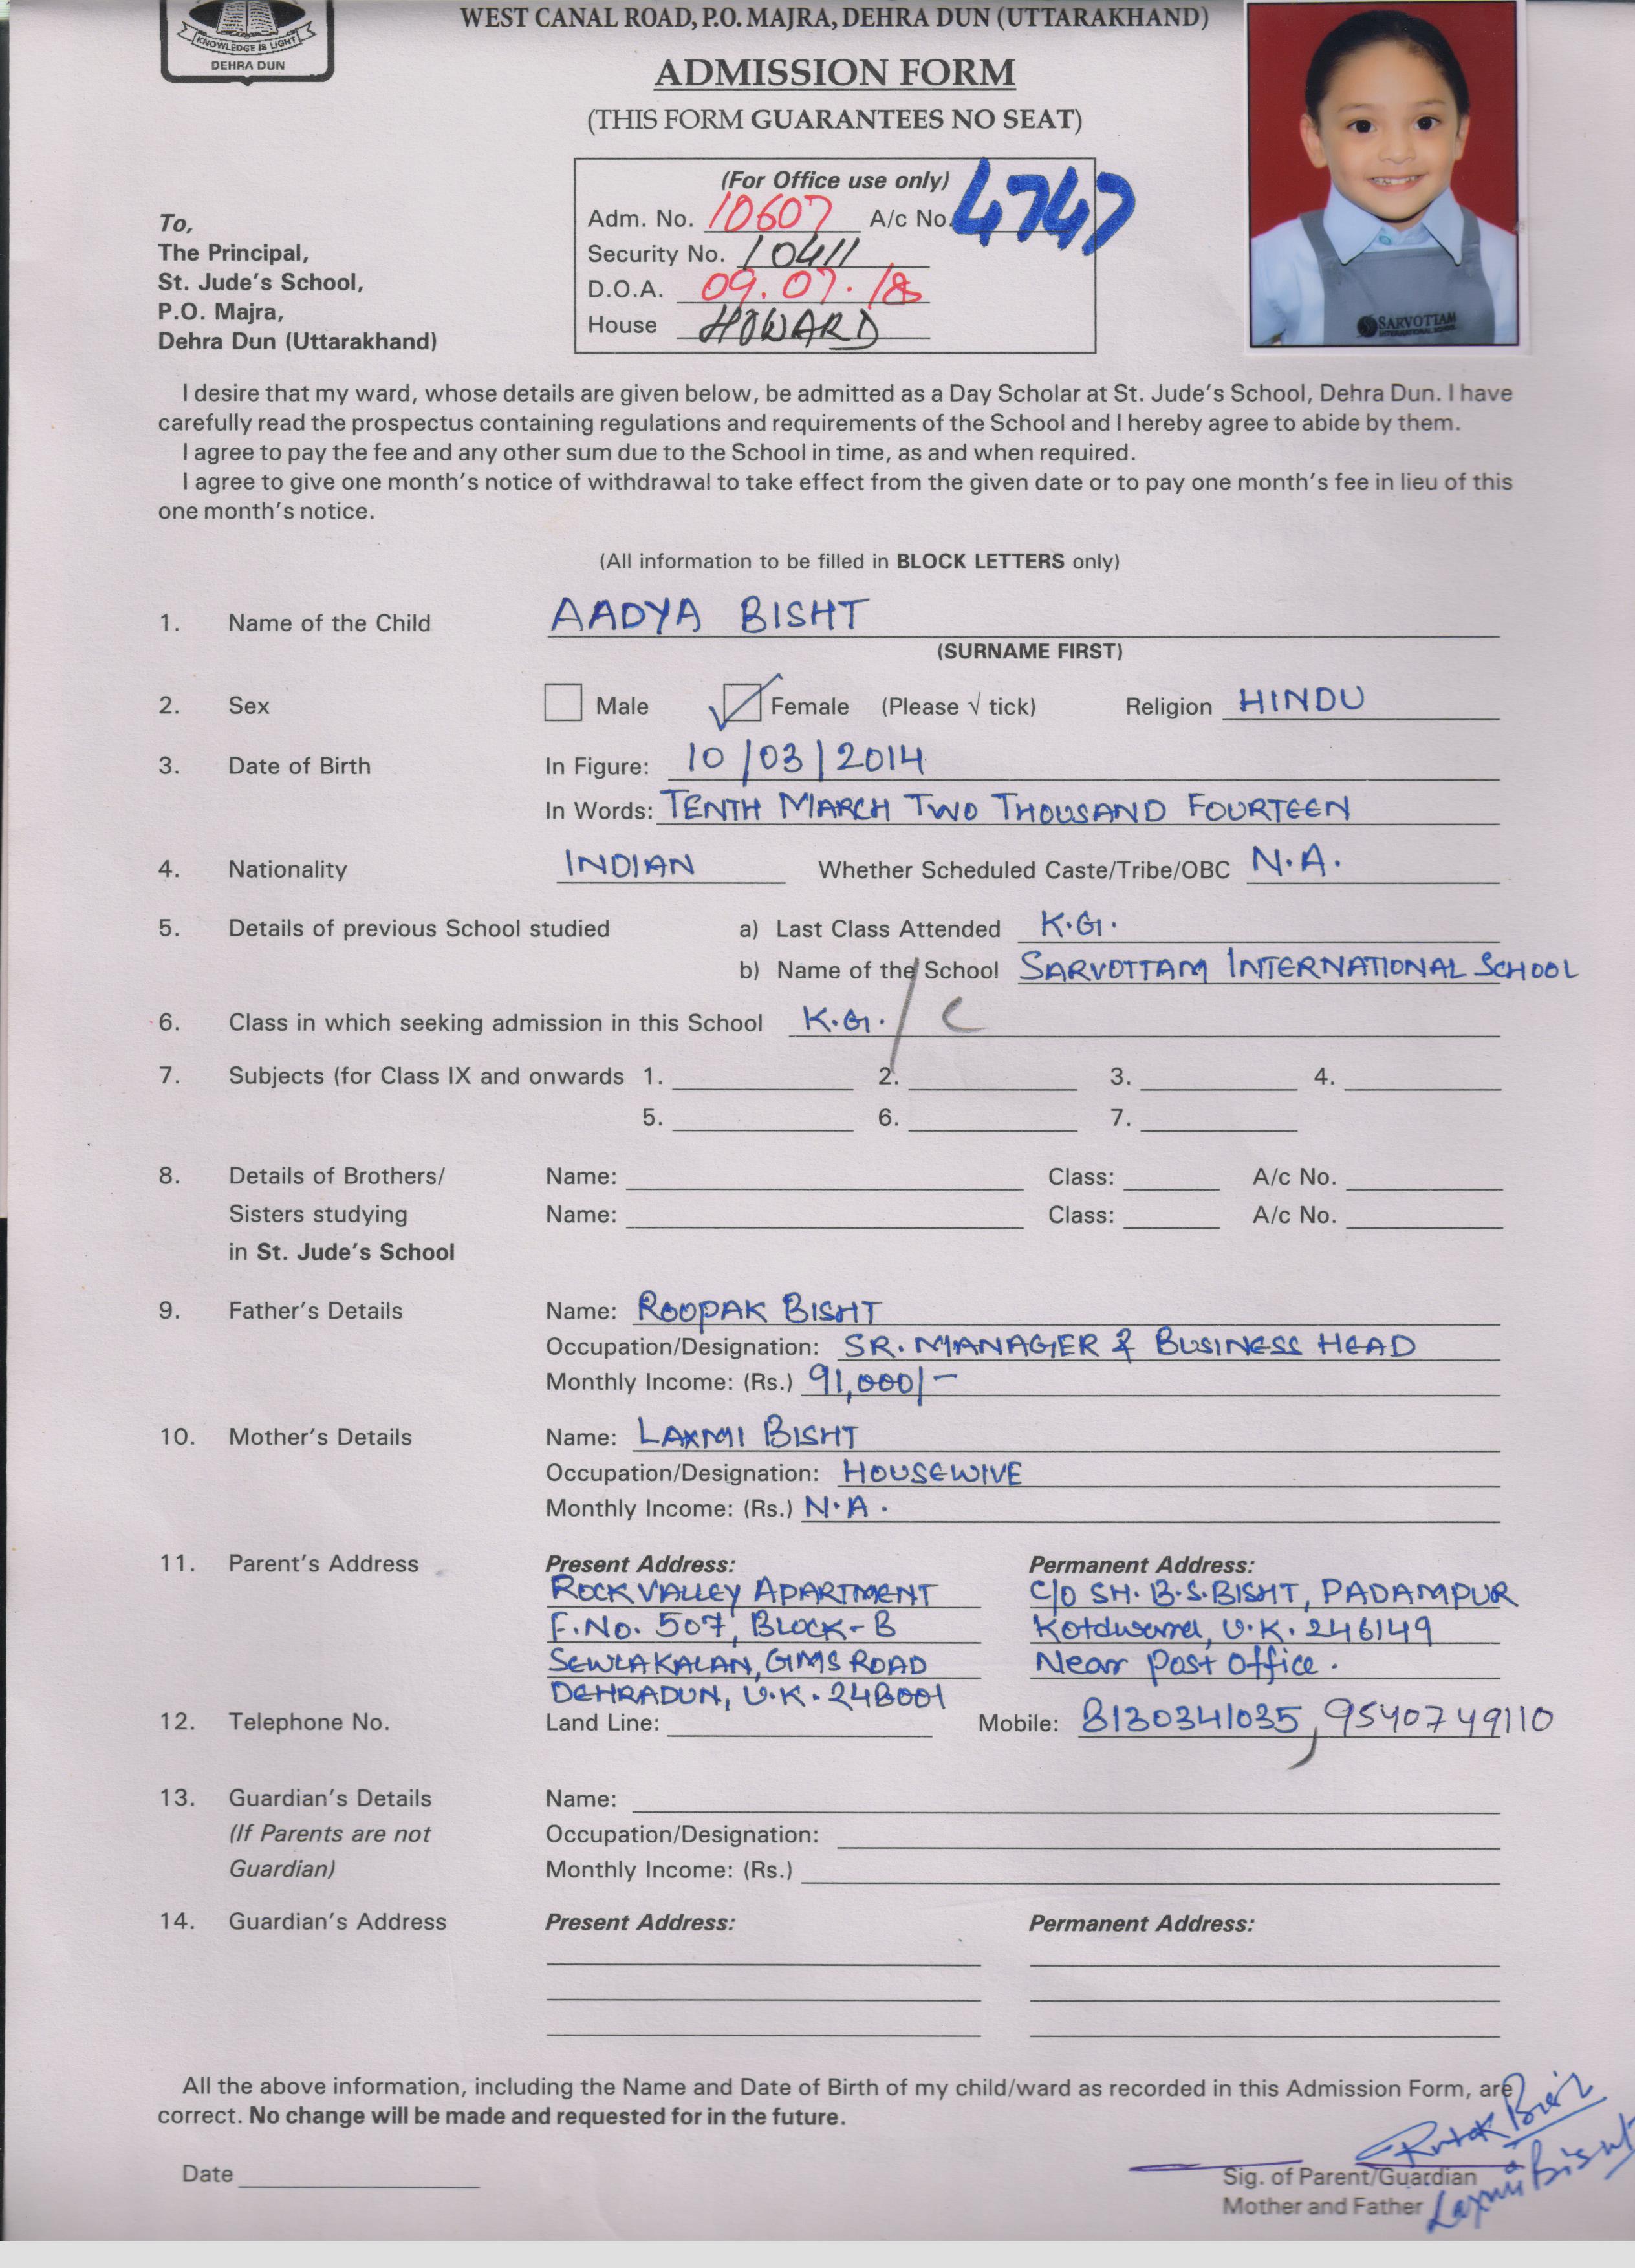 KNOWLEDGE IS LIGHT
DEHRA DUN
WEST CANAL ROAD, P.O. MAJRA, DEHRA DUN (UTTARAKHAND)
ADMISSION FORM
(THIS FORM GUARANTEES NO SEAT)
(For Office use only)
Adm. No. 10607 A/c No. 4747
Security No. 10411
D.O.A. 09.07.18
House HOWARD
To,
The Principal,
St. Jude's School,
P.O. Majra,
Dehra Dun (Uttarakhand)
SARVOTTAM
INTERNATIONAL SCHOOL
I desire that my ward, whose details are given below, be admitted as a Day Scholar at St. Jude's School, Dehra Dun. I have
carefully read the prospectus containing regulations and requirements of the School and I hereby agree to abide by them.
I agree to pay the fee and any other sum due to the School in time, as and when required.
I agree to give one month's notice of withdrawal to take effect from the given date or to pay one month's fee in lieu of this
one month's notice.
(All information to be filled in BLOCK LETTERS only)
1. Name of the Child AADYA BISHT
(SURNAME FIRST)
2. Sex Male Female (Please √ tick) Religion HINDU
3. Date of Birth In Figure: 10/03/2014
In Words: TENTH MARCH TWO THOUSAND FOURTEEN
4. Nationality INDIAN Whether Scheduled Caste/Tribe/OBC N.A.
5. Details of previous School studied a) Last Class Attended K.G.
b) Name of the School SARVOTTAM INTERNATIONAL SCHOOL
6. Class in which seeking admission in this School K.G. / C
7. Subjects (for Class IX and onwards 1. 2. 3. 4.
5. 6. 7.
8. Details of Brothers/ Name: Class: A/c No.
Sisters studying Name: Class: A/c No.
in St. Jude's School
9. Father's Details Name: ROOPAK BISHT
Occupation/Designation: SR. MANAGER & BUSINESS HEAD
Monthly Income: (Rs.) 91,000/-
10. Mother's Details Name: LAXMI BISHT
Occupation/Designation: HOUSEWIVE
Monthly Income: (Rs.) N.A.
11. Parent's Address Present Address: Permanent Address:
ROCK VALLEY APARTMENT C/O SH. B.S. BISHT, PADAMPUR
F.No. 507, BLOCK-B Kotdwara, U.K. 246149
SEWLA KALAN, GMS ROAD Near Post Office.
DEHRADUN, U.K. 248001
12. Telephone No. Land Line: Mobile: 8130341035, 9540749110
13. Guardian's Details Name:
(If Parents are not Occupation/Designation:
Guardian) Monthly Income: (Rs.)
14. Guardian's Address Present Address: Permanent Address:
All the above information, including the Name and Date of Birth of my child/ward as recorded in this Admission Form, are
correct. No change will be made and requested for in the future.
Date
Sig. of Parent/Guardian
Mother and Father
Laxmi Bisht